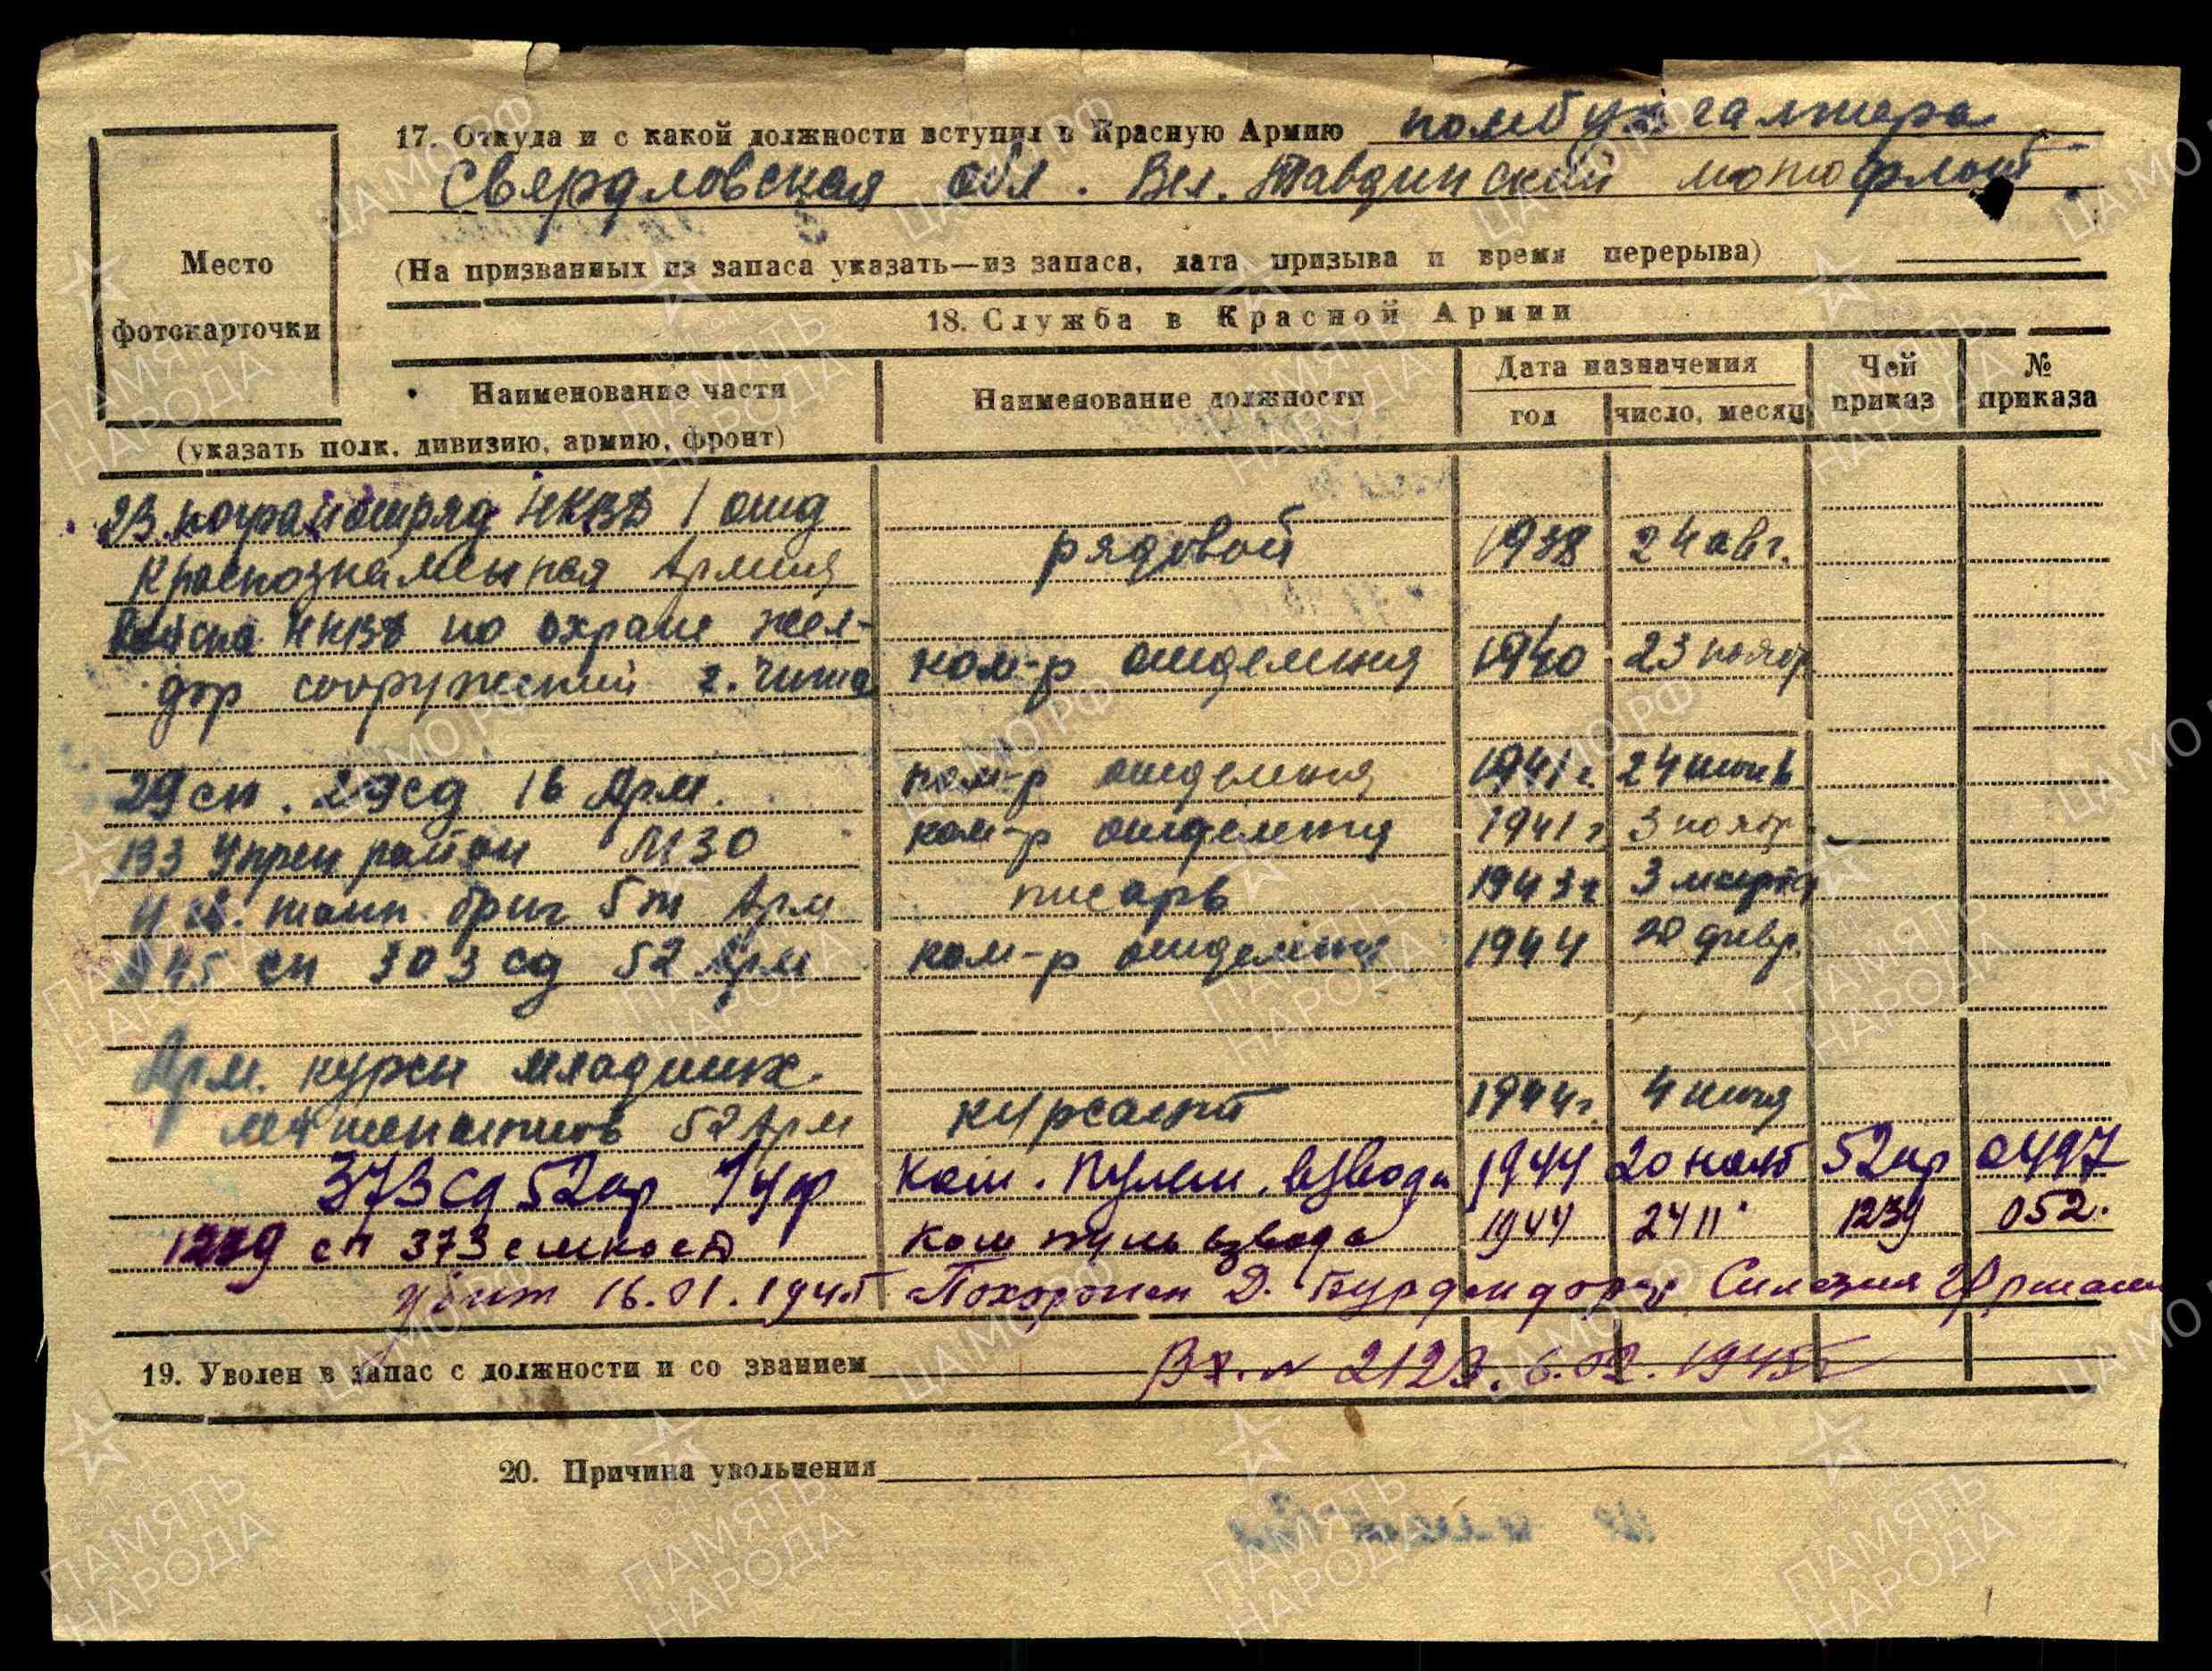 17. Откуда и с какой должности вступил в Красную Армию помбухгалтера
Свердловская обл. Тавдинский
(На призванных из запаса указать—из запаса, дата призыва и время перерыва)
Место
фотокарточки
18. Служба в Красной Армии
Наименование части
(указать полк, дивизию, армию, фронт)
Наименование должности
Дата назначения
год
число, месяц
Чей приказ
№ приказа
23 погранотряд НКВД 1 отд
Краснознаменная Армия рядовой 1938 24 авг.
Войска НКВД по охране жел-
дор сооружений г. Чита ком-р отделения 1940 23 нояб
29 сп. 29 сд 16 Арм. ком-р отделения 1941 г. 24 июнь
133 Укреп район МЗО ком-р отделения 1941 г 3 нояб.
танк. бриг 5 Арм писарь 1943 г 3 марта
845 сп 303 сд 52 Арм ком-р отделения 1944 20 февр.
Арм. курсы младших
лейтенантов 52 Арм курсант 1944 г. 4
373 сд 52 ар 1 Уф Ком. Пулем. взвода 1944 20 нояб 52 ар 0497
1239 сп 373 ком пуль взвода 1944 24 11 1239 052.
убит 16.01.1945 Похоронен Д. Силезия Германия
19. Уволен в запас с должности и со званием Вх. № 2123. 6.02.1945г
20. Причина увольнения
ЦАМО РФ
ПАМЯТЬ НАРОДА